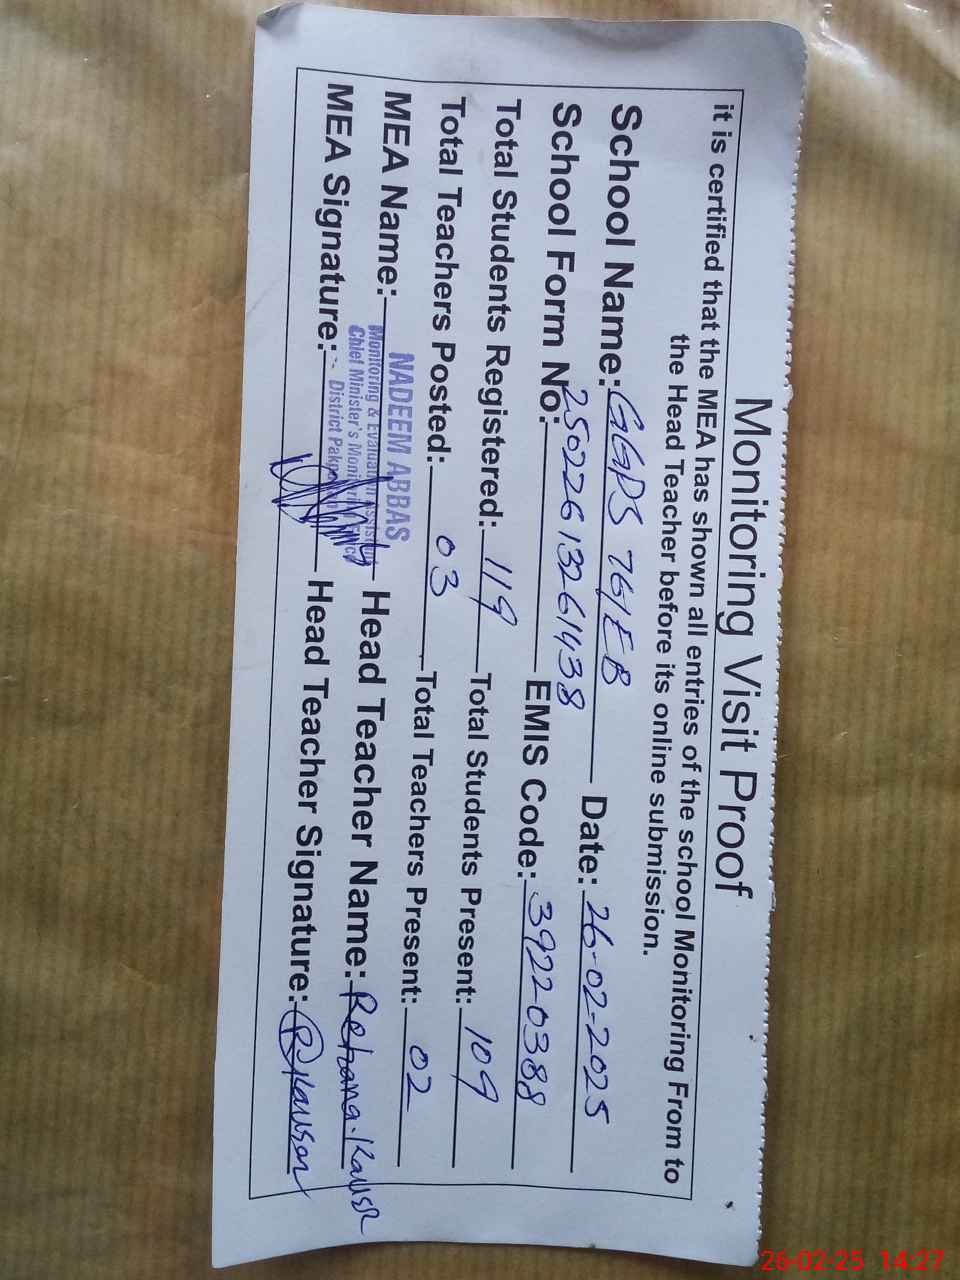 Monitoring Visit Proof
it is certified that the MEA has shown all entries of the school Monitoring From to
the Head Teacher before its online submission.
School Name: GGPS 76/EB Date: 26-02-2025
School Form No: 25022613261438 EMIS Code: 39220388
Total Students Registered: 119 Total Students Present: 109
Total Teachers Posted: 03 Total Teachers Present: 02
MEA Name: NADEEM ABBAS Head Teacher Name: Rehana Kausr
Monitoring & Evaluation Assistant
Chief Minister's Monitoring
District Pakpattan
MEA Signature: Head Teacher Signature: R.Kausar
26-02-25 14:27